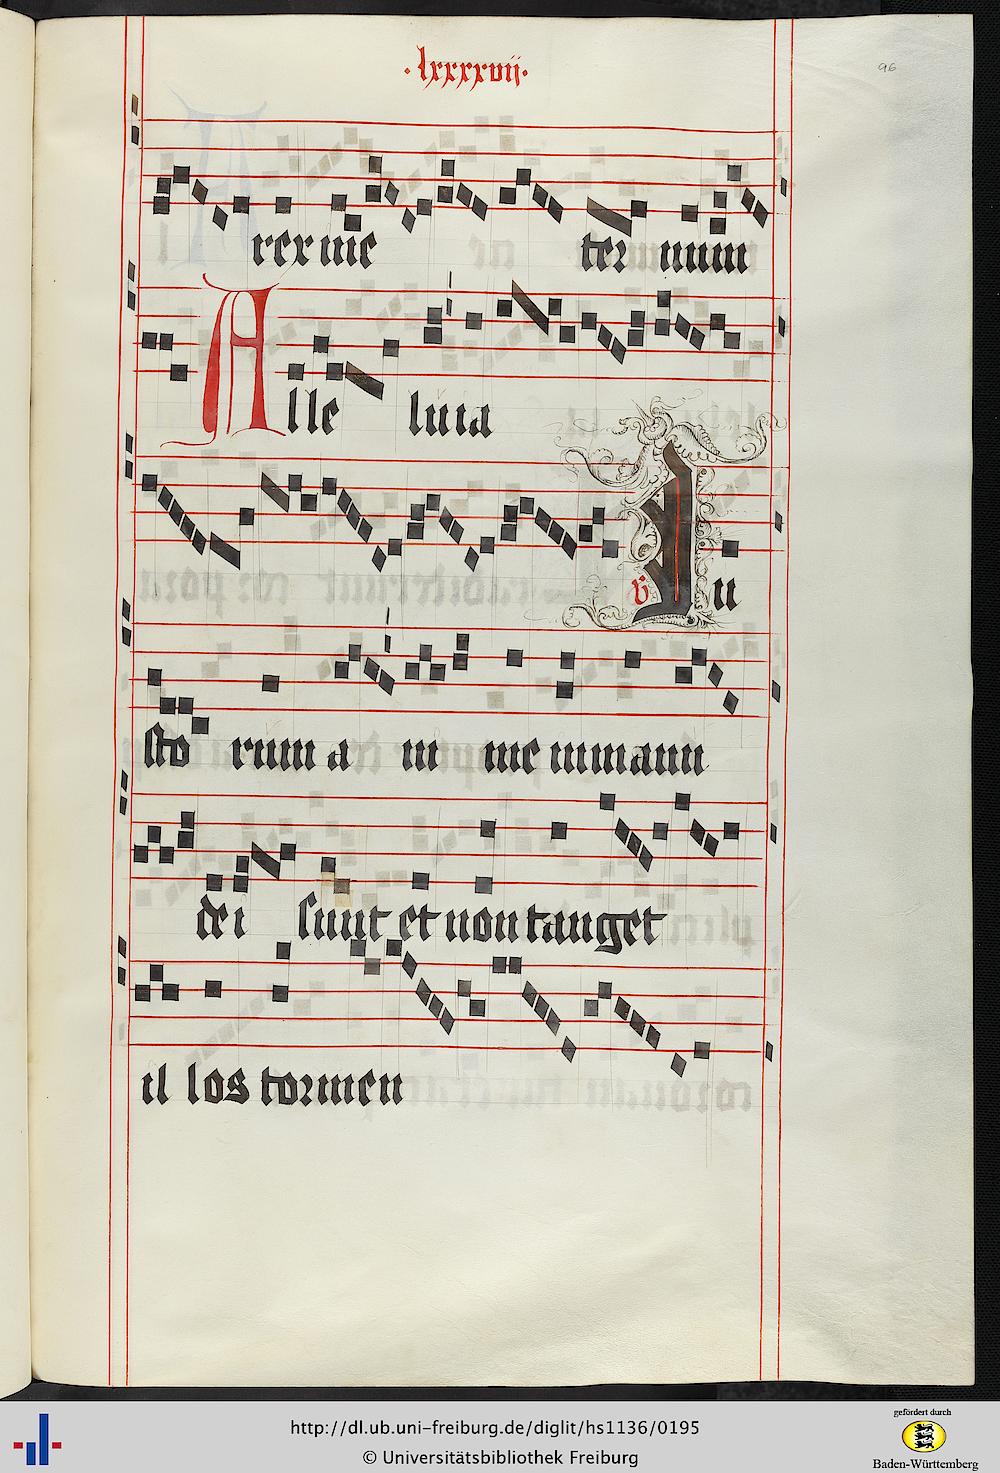 ·lxxxxvii·
96
rex me ter num
Alle luia
v Iu
sto rum a ni me in manu
dei sunt et non tanget
il los tormen
http://dl.ub.uni-freiburg.de/diglit/hs1136/0195
© Universitätsbibliothek Freiburg
gefördert durch
Baden-Württemberg